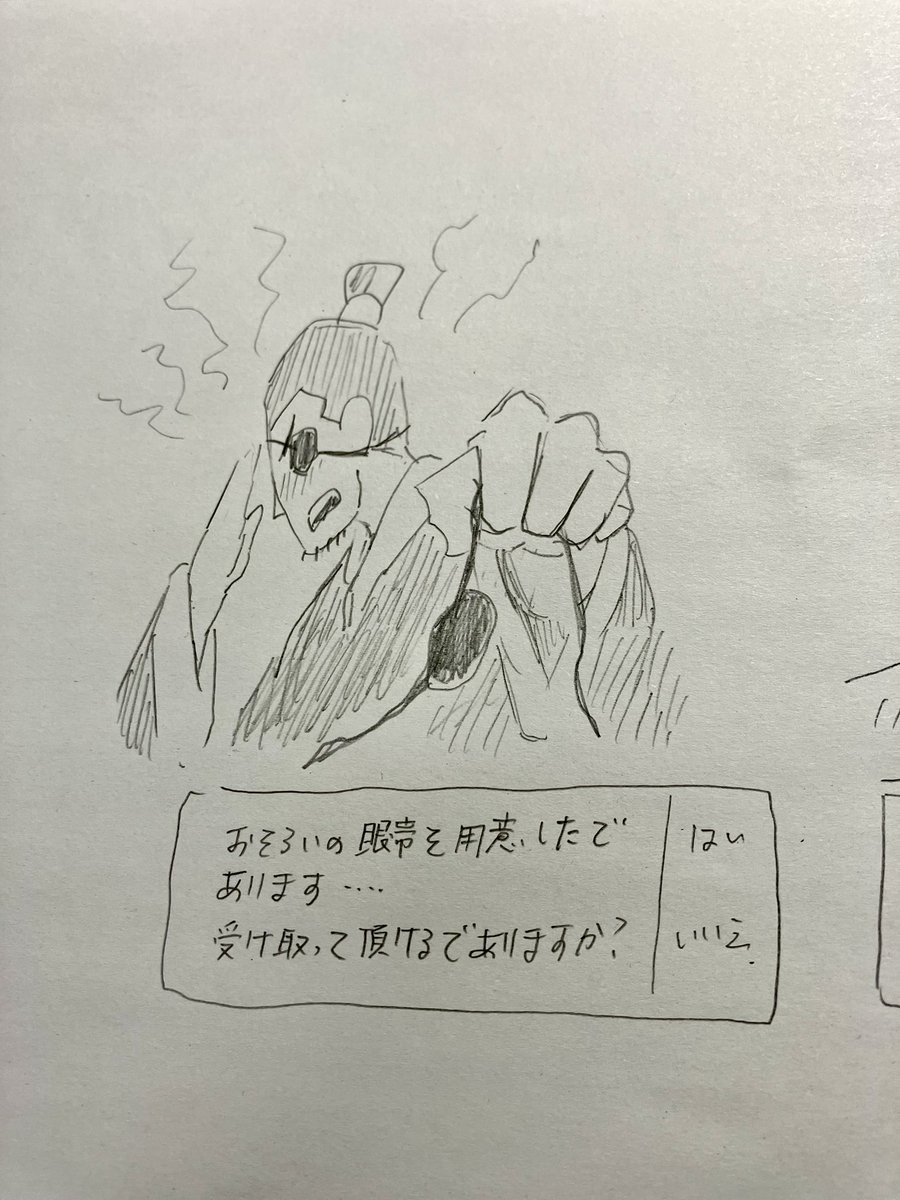 おそろいの眼帯を用意したで
あります‥‥
受け取って頂けるでありますか?
はい
いいえ